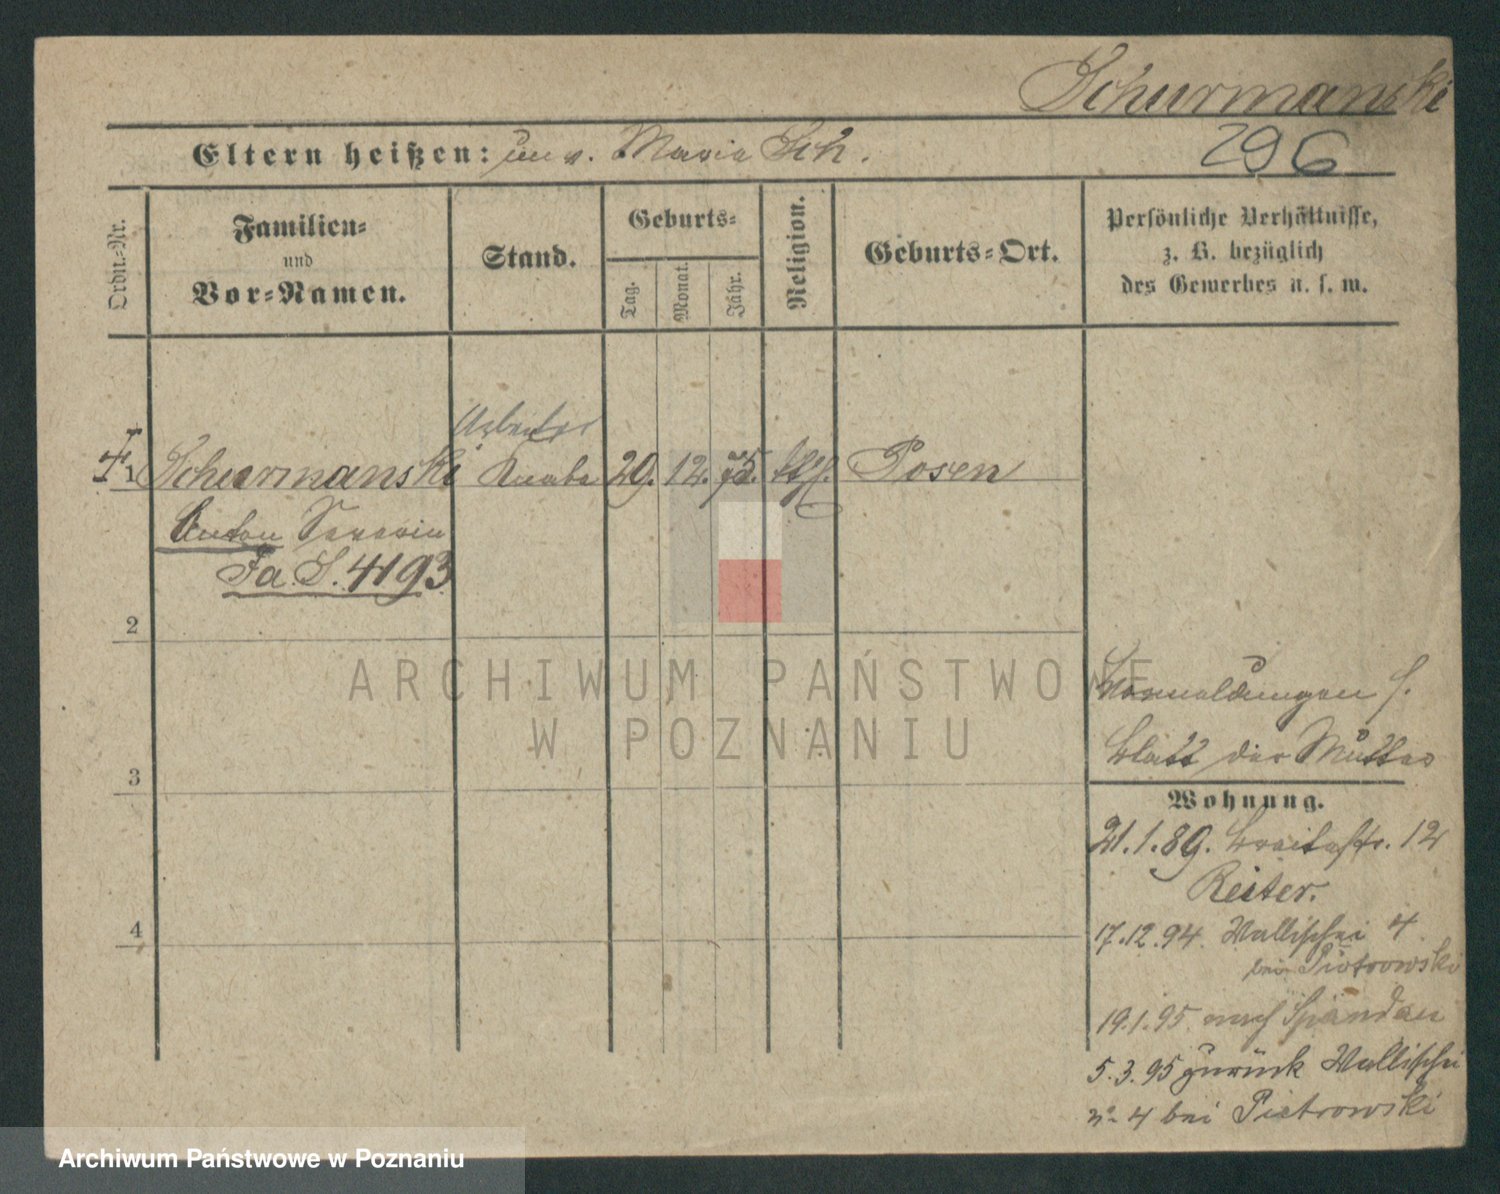 Schurmanski
Eltern heißen: unv. Maria Sch.
296
Ordn.-Nr.
Familien-
und
Vor-Namen.
Stand.
Geburts-
Tag.
Monat.
Jahr.
Religion.
Geburts-Ort.
Persönliche Verhältnisse,
z. B. bezüglich
des Gewerbes u. s. w.
Arbeiter
1 Schurmanski Knabe 29. 12. 75. kth. Posen
Anton Severin
Fa. S. 4193
2
ARCHIWUM PAŃSTWOWE
W POZNANIU
Vormeldungen s.
Blatt der Mutter
3
Wohnung.
21.1.89. Breitestr. 12
Reiter.
4
17.12.94. Wallischei 4
bei Piotrowski
19.1.95 nach Spandau
5.3.95 zurück Wallischei
No 4 bei Piotrowski
Archiwum Państwowe w Poznaniu